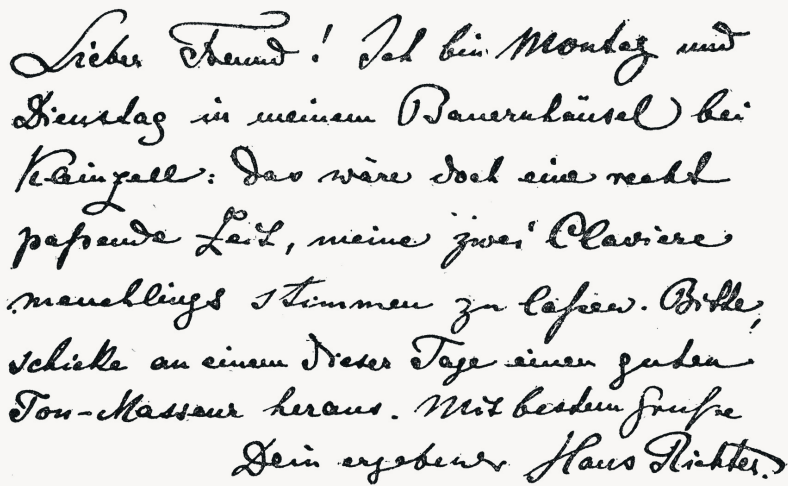 Lieber Freund! Ich bin Montag und
Dienstag in meinem Bauernhäusel bei
Kleinzell: das wäre doch eine recht
paßende Zeit, meine zwei Claviere
meuchlings stimmen zu laßen. Bitte,
schicke an einem dieser Tage einen guten
Ton-Masseur heraus. Mit bestem Gruße
Dein ergebener Hans Richter.